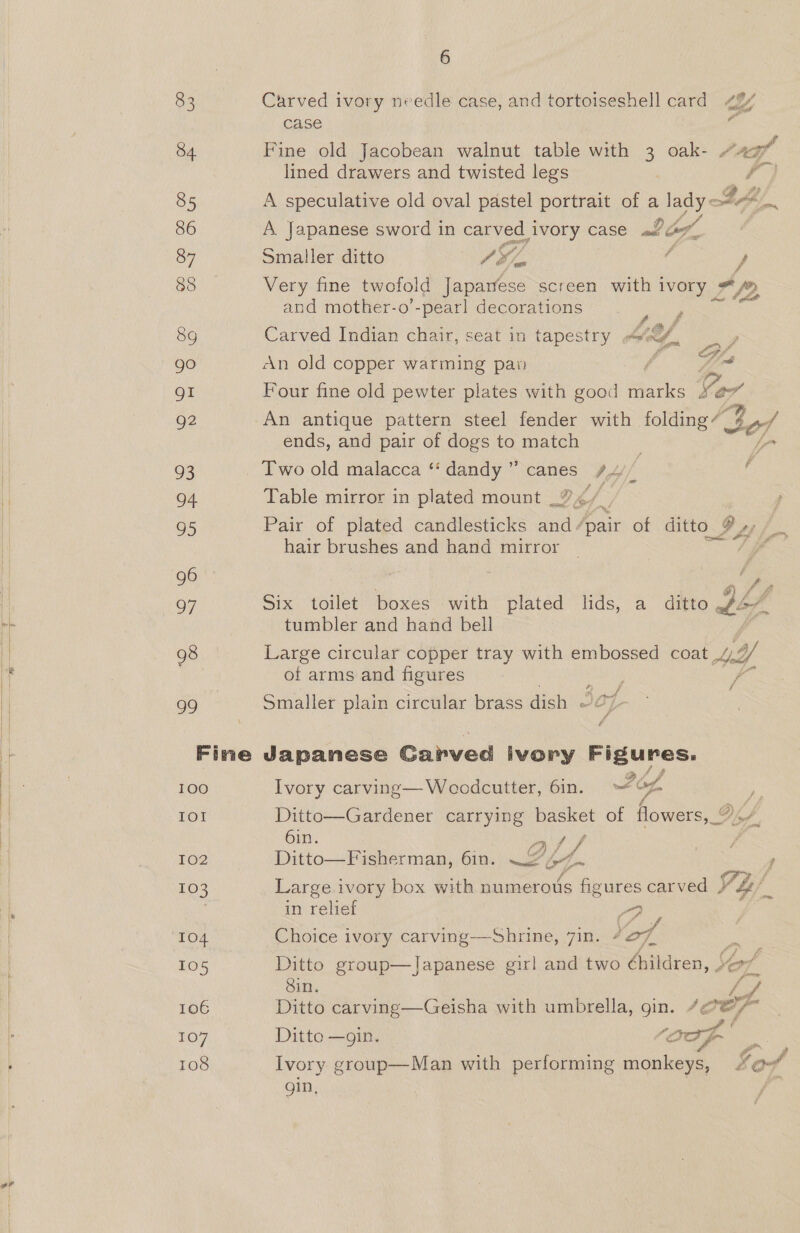 6
83 Carved ivory needle case, and tortoiseshell card
case
84 Fine old Jacobean walnut table with 3 oak-
lined drawers and twisted legs
85 A speculative old oval pastel portrait of a lady
86 A Japanese sword in carved ivory case
87 Smaller ditto
88 Very fine twofold Japanese screen with ivory
and mother-o'-pearl decorations
89 Carved Indian chair, seat in tapestry
90 An old copper warming pan
91 Four fine old pewter plates with good marks
92 An antique pattern steel fender with folding
ends, and pair of dogs to match
93 Two old malacca “dandy” canes
94 Table mirror in plated mount
95 Pair of plated candlesticks and pair of ditto
hair brushes and hand mirror
96
97 Six toilet boxes with plated lids, a ditto
tumbler and hand bell
98 Large circular copper tray with embossed coat
of arms and figures
99 Smaller plain circular brass dish
Fine Japanese Carved Ivory Figures.
100 Ivory carving—Woodcutter, 6in.
101 Ditto—Gardener carrying basket of flowers,
6in.
102 Ditto—Fisherman, 6in.
103 Large ivory box with numerous figures carved
in relief
104 Choice ivory carving—Shrine, 7in.
105 Ditto group—Japanese girl and two children,
8in.
106 Ditto carving—Geisha with umbrella, 9in.
107 Ditto—9in.
108 Ivory group—Man with performing monkeys,
9in,